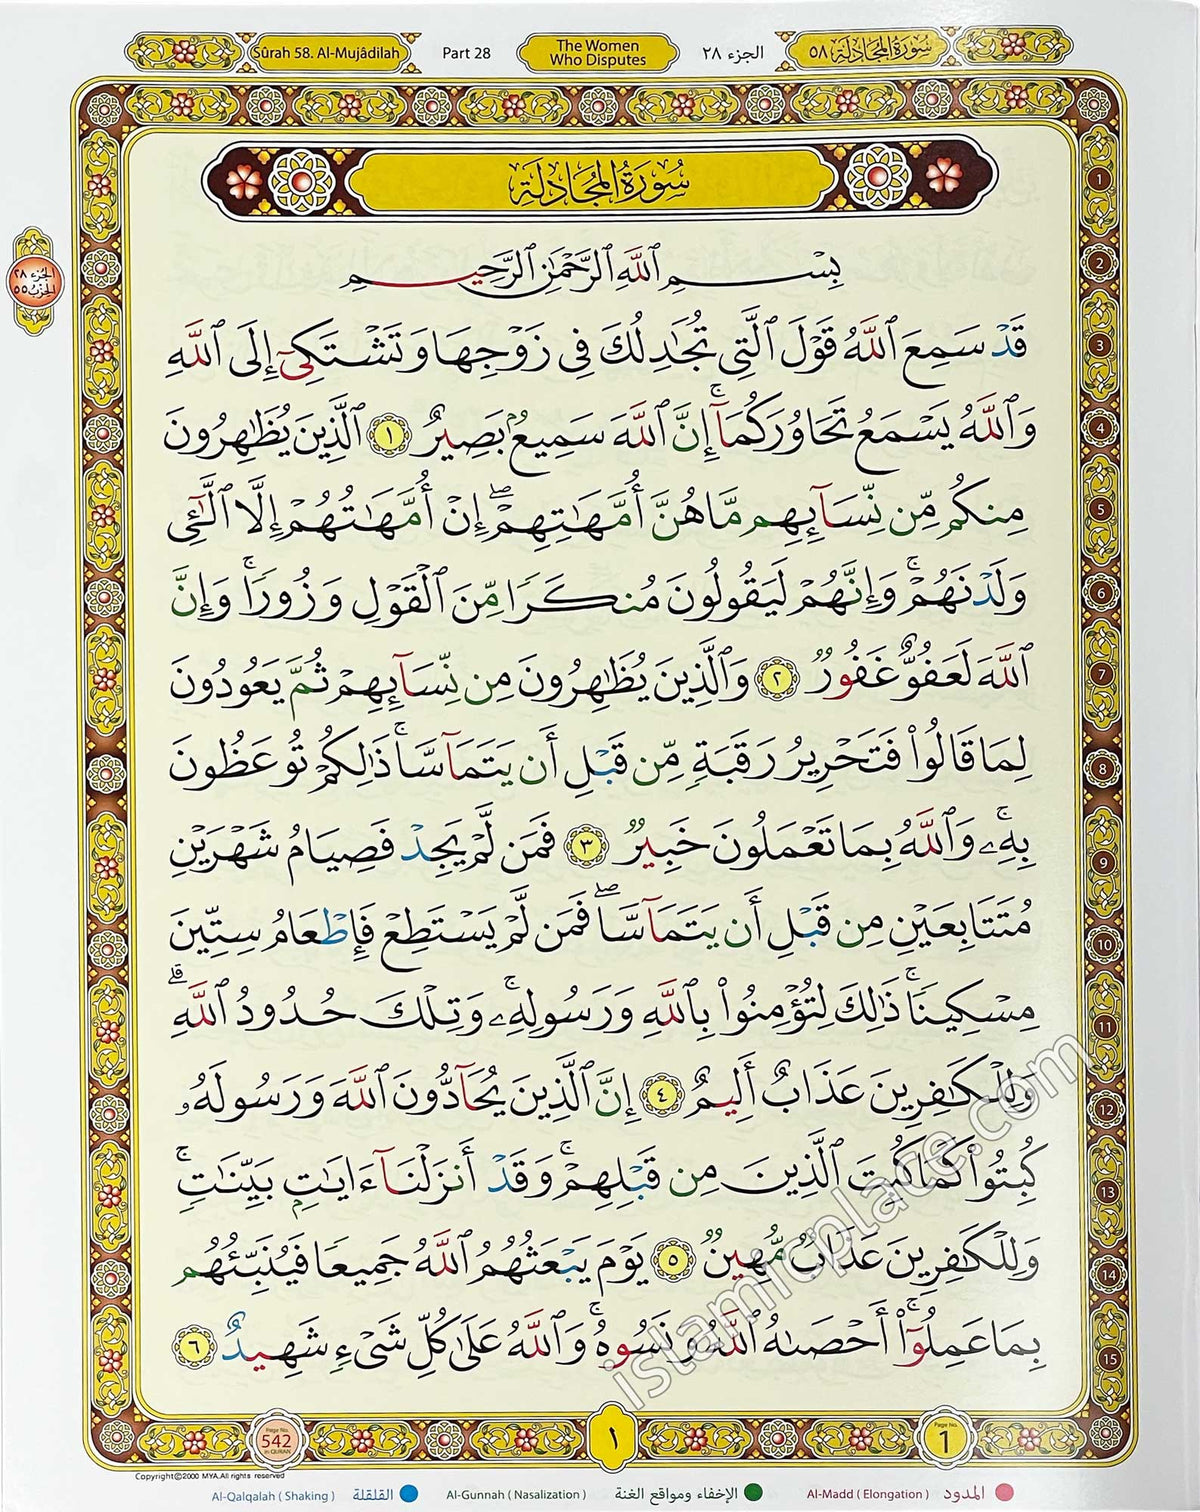 Sûrah 58. Al-Mujâdilah
Part 28
The Women
Who Disputes
الجزء ٢٨
سورة المجادلة ٥٨
سُورَةُ المُجَادلَة
الجزء ٢٨
الحزب ٥٥
بِسْمِ ٱللَّهِ ٱلرَّحْمَٰنِ ٱلرَّحِيمِ
قَدْ سَمِعَ ٱللَّهُ قَوْلَ ٱلَّتِى تُجَٰدِلُكَ فِى زَوْجِهَا وَتَشْتَكِىٓ إِلَى ٱللَّهِ
وَٱللَّهُ يَسْمَعُ تَحَاوُرَكُمَآ ۚ إِنَّ ٱللَّهَ سَمِيعٌۢ بَصِيرٌ ١ ٱلَّذِينَ يُظَٰهِرُونَ
مِنكُم مِّن نِّسَآئِهِم مَّا هُنَّ أُمَّهَٰتِهِمْ ۖ إِنْ أُمَّهَٰتُهُمْ إِلَّا ٱلَّٰٓـِٔى
وَلَدْنَهُمْ ۚ وَإِنَّهُمْ لَيَقُولُونَ مُنكَرًا مِّنَ ٱلْقَوْلِ وَزُورًا ۚ وَإِنَّ
ٱللَّهَ لَعَفُوٌّ غَفُورٌ ٢ وَٱلَّذِينَ يُظَٰهِرُونَ مِن نِّسَآئِهِمْ ثُمَّ يَعُودُونَ
لِمَا قَالُوا۟ فَتَحْرِيرُ رَقَبَةٍ مِّن قَبْلِ أَن يَتَمَآسَّا ۚ ذَٰلِكُمْ تُوعَظُونَ
بِهِۦ ۚ وَٱللَّهُ بِمَا تَعْمَلُونَ خَبِيرٌ ٣ فَمَن لَّمْ يَجِدْ فَصِيَامُ شَهْرَيْنِ
مُتَتَابِعَيْنِ مِن قَبْلِ أَن يَتَمَآسَّا ۖ فَمَن لَّمْ يَسْتَطِعْ فَإِطْعَامُ سِتِّينَ
مِسْكِينًا ۚ ذَٰلِكَ لِتُؤْمِنُوا۟ بِٱللَّهِ وَرَسُولِهِۦ ۚ وَتِلْكَ حُدُودُ ٱللَّهِ ۗ
وَلِلْكَٰفِرِينَ عَذَابٌ أَلِيمٌ ٤ إِنَّ ٱلَّذِينَ يُحَآدُّونَ ٱللَّهَ وَرَسُولَهُۥ
كُبِتُوا۟ كَمَا كُبِتَ ٱلَّذِينَ مِن قَبْلِهِمْ ۚ وَقَدْ أَنزَلْنَآ ءَايَٰتٍۭ بَيِّنَٰتٍ ۚ
وَلِلْكَٰفِرِينَ عَذَابٌ مُّهِينٌ ٥ يَوْمَ يَبْعَثُهُمُ ٱللَّهُ جَمِيعًا فَيُنَبِّئُهُم
بِمَا عَمِلُوٓا۟ ۚ أَحْصَىٰهُ ٱللَّهُ وَنَسُوهُ ۚ وَٱللَّهُ عَلَىٰ كُلِّ شَىْءٍ شَهِيدٌ ٦
1
2
3
4
5
6
7
8
9
10
11
12
13
14
15
islamicplace.com
Page No.
542
in QURAN
١
Page No.
1
Copyright©2000 MYA.All rights reserved
Al-Qalqalah ( Shaking ) القلقلة
Al-Gunnah ( Nasalization ) الإخفاء ومواقع الغنة
Al-Madd ( Elongation ) المدود